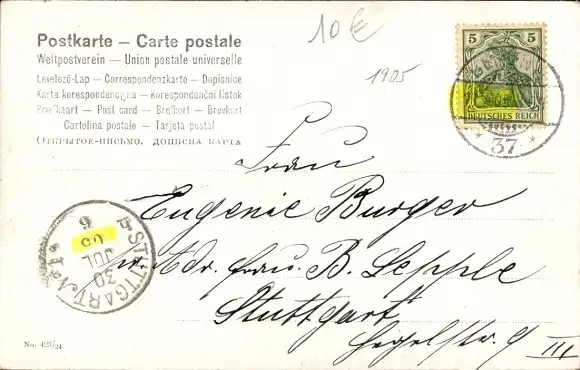 10 €
1905
Postkarte – Carte postale
Weltpostverein – Union postale universelle
Levelező-Lap – Correspondenzkarte – Dopisnice
Karta korespondencyjna – Korespondenční lístek
Briefkaart – Post card – Brefkort – Brevkort
Cartolina postale – Tarjeta postal
Открытое-письмо, дописна карта
5 5
DEUTSCHES REICH
37
Frau
Eugenie Burger
Adr. Frau. B. Lepple
Stuttgart
Hegelstr. 9
III
STUTTGART No. 1
30
JUL
05
6
No. 423/24